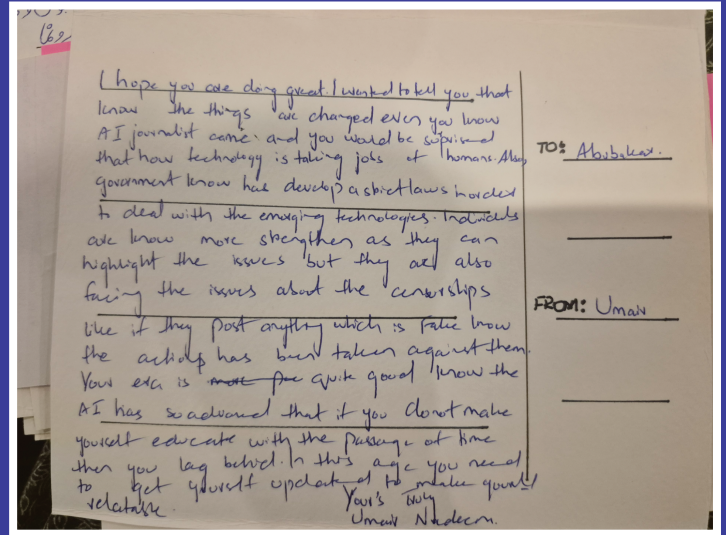 I hope you are doing great. I wanted to tell you that
know the things are changed even you know
AI journalist came. and you would be suprised
that how technology is taking jobs of humans. Also,
government know has develop a strict laws inorder
to deal with the emerging technologies. Individuals
are know more strengthen as they can
highlight the issues but they are also
facing the issues about the censorships
like if they post anything which is fake know
the actions has been taken against them.
Your era is quite good know the
AI has so advanced that if you donot make
yourself educate with the passage of time
then you lag behind. In this age you need
to get yourself updated to make yourself
relatable
Your's truly
Umair Nadeem.
TO: Abubakar.
FROM: Umair